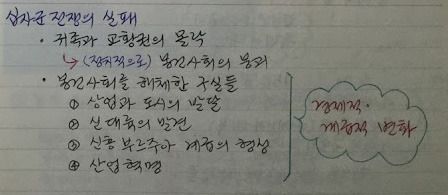 십자군 전쟁의 실패
• 귀족과 교황권의 몰락
↳ (정치적으로) 봉건사회의 붕괴
• 봉건사회를 해체한 구실들
① 상업과 도시의 발달
② 신대륙의 발견
③ 신흥 부르주아 계급의 형성
④ 산업혁명
경제적·
계급적 변화